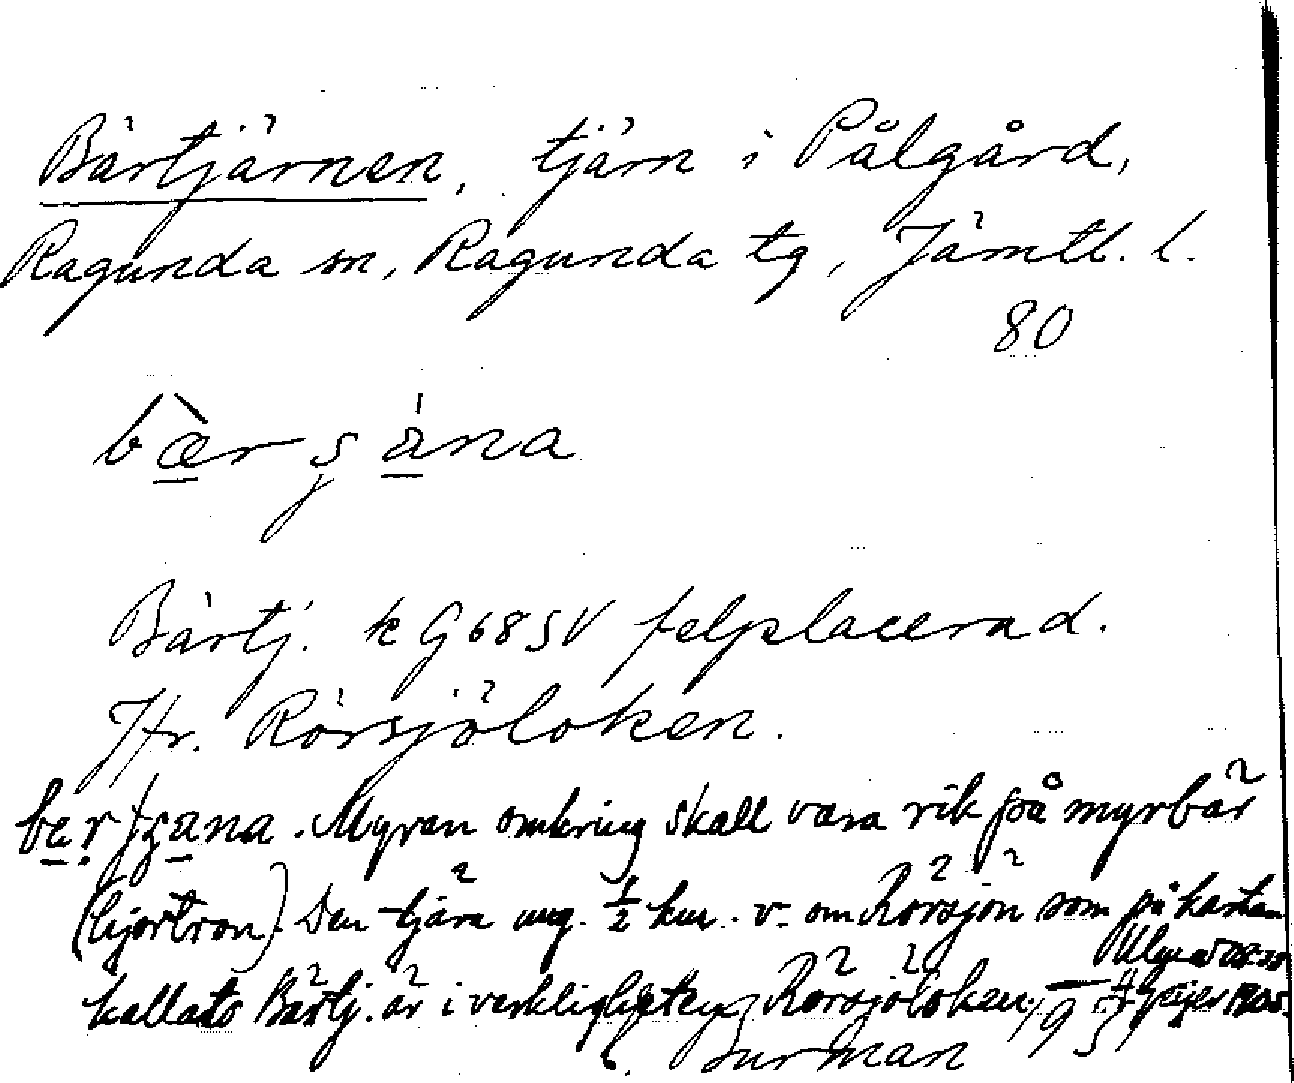 Bärtjärnen, tjärn i Pålgård,
Ragunda sn, Ragunda tg, Jämtl. l.
80
bæ̀r ʂána
Bärtj. k G68SV felplacerad.
Jfr. Rörsjöloken.
Myran omkring skall vara rik på myrbär
(hjortron). Den tjärn ung. ½ km. v. om Rörsjön som på kartan
kallats Bärtj. är i verkligheten Rörsjöloken.
Geijer 1935
Surman 1951